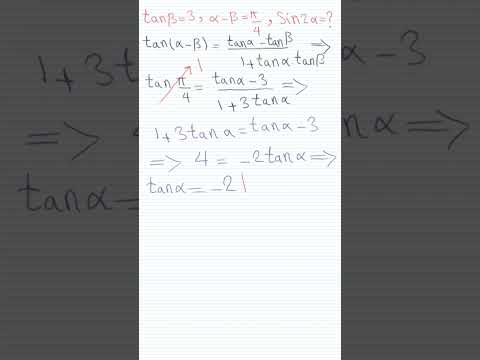 tanβ=3, α-β=π/4, Sin2α=?
tan(α-β) = (tanα-tanβ)/(1+tanα.tanβ) =>
1
tan π/4 = (tanα-3)/(1+3tanα) =>
1+3tanα=tanα-3
=> 4 = -2tanα=>
tanα=-2